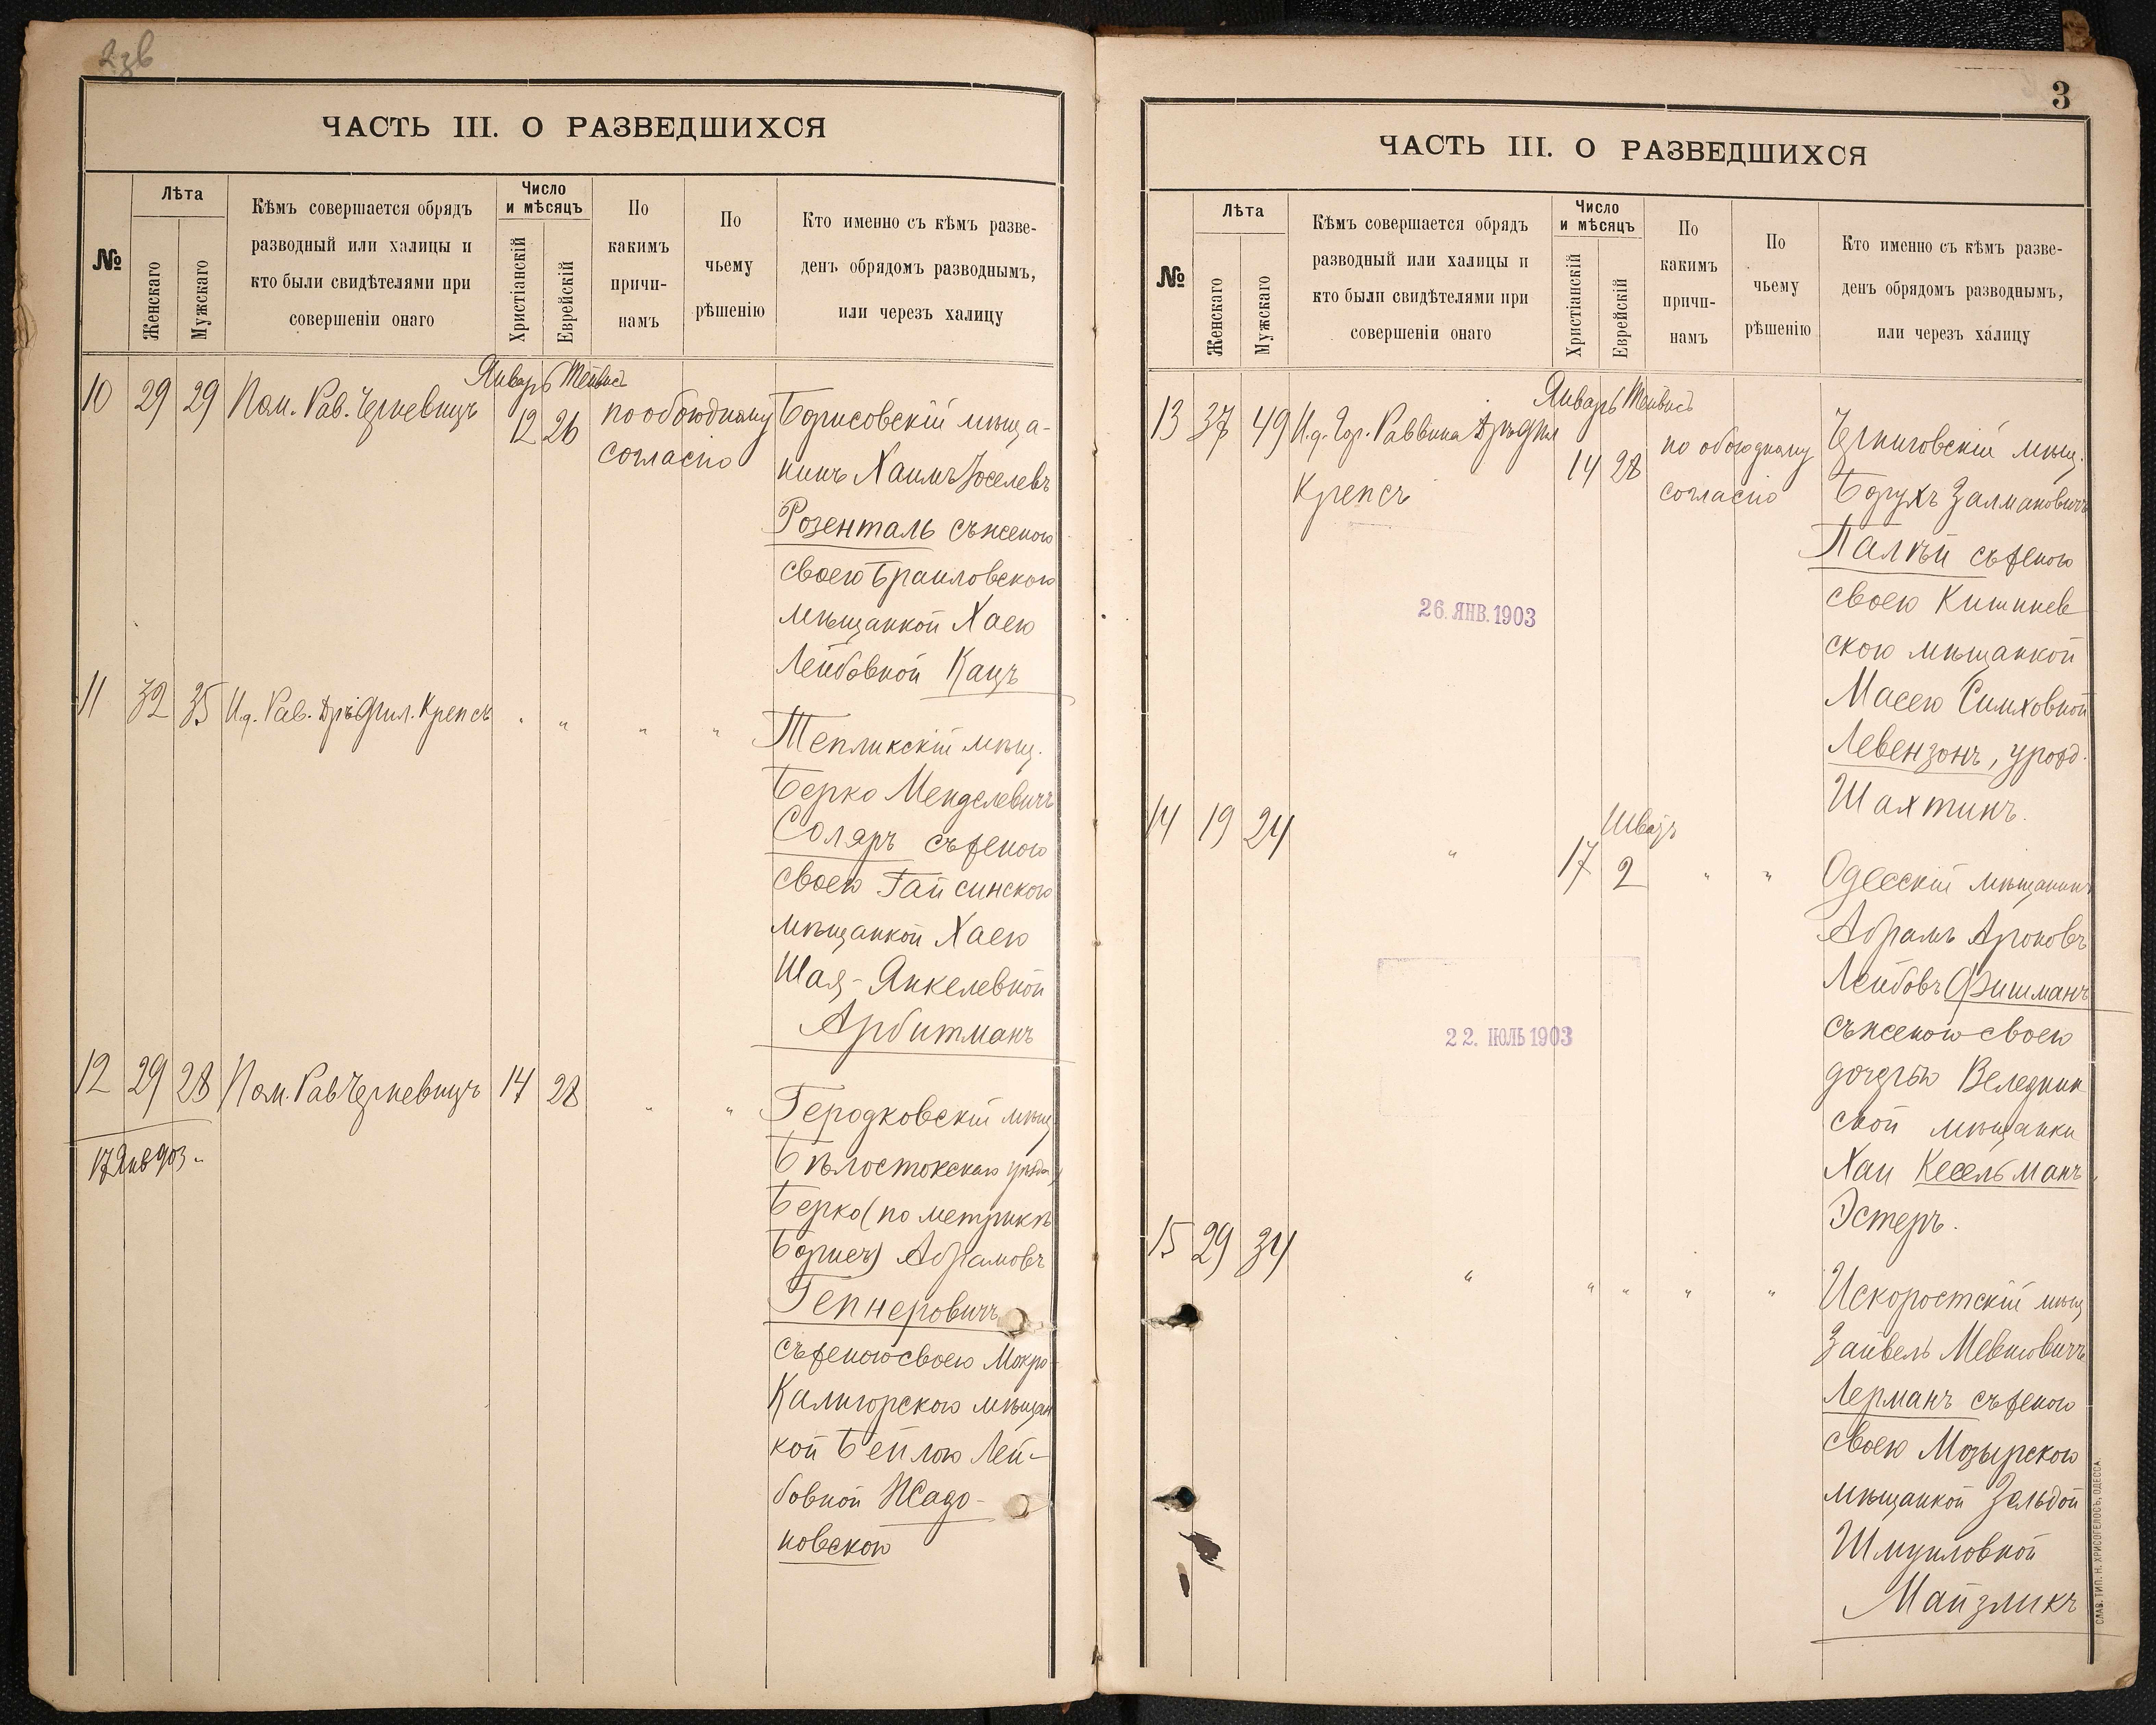 ЧАСТЬ III. О РАЗВЕДШИХСЯ
№
Лѣта
Женскаго
Мужскаго
Кѣмъ совершается обрядъ
разводный или халицы и
кто были свидѣтелями при
совершеніи онаго
Число
и мѣсяцъ
Христіанскій
Еврейскій
По
какимъ
причи-
намъ
По
чьему
рѣшенію
Кто именно съ кѣмъ разве-
денъ обрядомъ разводнымъ,
или черезъ халицу
Январь Тейвисъ
10 29 29 Пом. Рав. Черневицъ 12 26 по обоюдному
согласію
Борисовскій мѣща-
нинъ Хаимъ Іоселевъ
Розенталь съ женою
своею Браиловскою
мѣщанкой Хаею
Лейбовной Кацъ
11 32 35 И.д. Рав. Дръ Фил. Крепсъ " " " "
Тепликскій мѣщ.
Берко Менделевичъ
Соляръ съ женою
своею Гайсинскою
мѣщанкой Хаею
Шая-Янкелевной
Арбитманъ
12 29 28 Пом. Рав Черневицъ 14 28 " "
17 Янв 903
Геродковскій мѣщ.
Бѣлостокскаго уѣзда
Берко (по метрикѣ
Борисъ) Абрамовъ
Гепнеровичъ
съ женою своею Мокро-
Калигорскою мѣщан
кой Бейлою Лей-
бовной Жадо-
новскою
3
ЧАСТЬ III. О РАЗВЕДШИХСЯ
№
Лѣта
Женскаго
Мужскаго
Кѣмъ совершается обрядъ
разводный или халицы и
кто были свидѣтелями при
совершеніи онаго
Число
и мѣсяцъ
Христіанскій
Еврейскій
По
какимъ
причи-
намъ
По
чьему
рѣшенію
Кто именно съ кѣмъ разве-
денъ обрядомъ разводнымъ,
или черезъ халицу
Январь Тейвисъ
13 37 49 И.д. Гор. Раввина Дръ Фил
Крепсъ
14 28 по обоюдному
согласію
Черниговскій мѣщ.
Борухъ Залмановичъ
Палѣй съ женою
своею Кишинев
скою мѣщанкой
Масею Симховной
Левензонъ, урожд.
Шахтинъ.
26. ЯНВ. 1903
Шватъ
14 19 24 " 17 2 " "
Одесскій мѣщанинъ
Абрамъ Ароновъ
Лейбовъ Фишманъ
съ женою своею
дочерью Веледник
ской мѣщанки
Хаи Кесельманъ
Эстеръ.
22. ІЮЛЬ 1903
15 29 34 " " " " "
Искоростскій мѣщ
Зайвель Мевшовичъ
Лерманъ съ женою
своею Мозырскою
мѣщанкой Зельдой
Шмуиловной
Майзликъ
СЛАВ. ТИП. Н. ХРИСОГЕЛОСЪ, ОДЕССА.